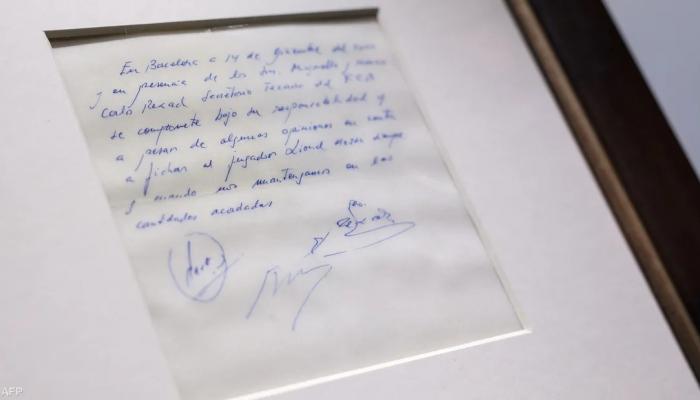 En Barcelona a 14 de diciembre del 2000
y en presencia de los Srs. Minguella y Horacio
Carles Rexach Secretario Técnico del F.C.B
se compromete bajo su responsabilidad y
a pesar de algunas opiniones en contra
a fichar al jugador Lionel Messi siempre
y cuando nos mantengamos en las
cantidades acordadas
AFP